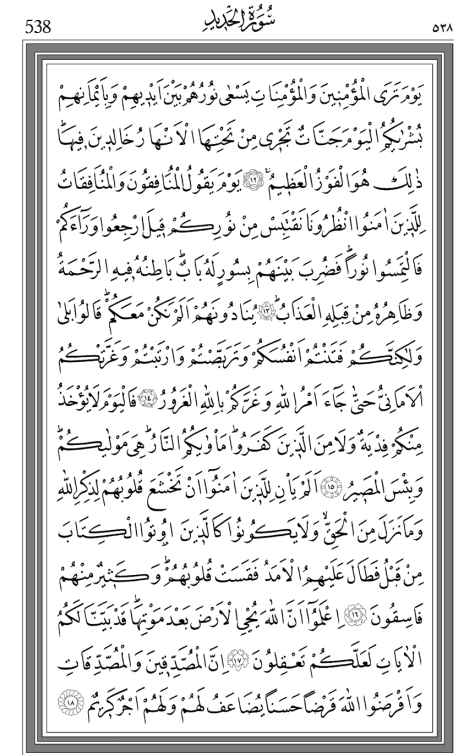 538 سُورَةُ الْحَدِيدِ ٥٣٨
يَوْمَ تَرَى الْمُؤْمِنِينَ وَالْمُؤْمِنَاتِ يَسْعٰى نُورُهُمْ بَيْنَ اَيْدٖيهِمْ وَبِاَيْمَانِهِمْ
بُشْرٰيكُمُ الْيَوْمَ جَنَّاتٌ تَجْرٖى مِنْ تَحْتِهَا الْاَنْهَارُ خَالِدٖينَ فٖيهَاۜ
ذٰلِكَ هُوَ الْفَوْزُ الْعَظٖيمُۚ ﴿١٢﴾ يَوْمَ يَقُولُ الْمُنَافِقُونَ وَالْمُنَافِقَاتُ
لِلَّذٖينَ اٰمَنُوا انْظُرُونَا نَقْتَبِسْ مِنْ نُورِكُمْۚ قٖيلَ ارْجِعُوا وَرَٓاءَكُمْ
فَالْتَمِسُوا نُورًاۜ فَضُرِبَ بَيْنَهُمْ بِسُورٍ لَهُ بَابٌۜ بَاطِنُهُ فٖيهِ الرَّحْمَةُ
وَظَاهِرُهُ مِنْ قِبَلِهِ الْعَذَابُۜ ﴿١٣﴾ يُنَادُونَهُمْ اَلَمْ نَكُنْ مَعَكُمْۜ قَالُوا بَلٰى
وَلٰكِنَّكُمْ فَتَنْتُمْ اَنْفُسَكُمْ وَتَرَبَّصْتُمْ وَارْتَبْتُمْ وَغَرَّتْكُمُ
الْاَمَانِيُّ حَتّٰى جَٓاءَ اَمْرُ اللّٰهِ وَغَرَّكُمْ بِاللّٰهِ الْغَرُورُ ﴿١٤﴾ فَالْيَوْمَ لَا يُؤْخَذُ
مِنْكُمْ فِدْيَةٌ وَلَا مِنَ الَّذٖينَ كَفَرُواۜ مَأْوٰيكُمُ النَّارُۜ هِيَ مَوْلٰيكُمْۜ
وَبِئْسَ الْمَصٖيرُ ﴿١٥﴾ اَلَمْ يَأْنِ لِلَّذٖينَ اٰمَنُٓوا اَنْ تَخْشَعَ قُلُوبُهُمْ لِذِكْرِ اللّٰهِ
وَمَا نَزَلَ مِنَ الْحَقِّۙ وَلَا يَكُونُوا كَالَّذٖينَ اُوتُوا الْكِتَابَ
مِنْ قَبْلُ فَطَالَ عَلَيْهِمُ الْاَمَدُ فَقَسَتْ قُلُوبُهُمْۜ وَكَثٖيرٌ مِنْهُمْ
فَاسِقُونَ ﴿١٦﴾ اِعْلَمُٓوا اَنَّ اللّٰهَ يُحْيِ الْاَرْضَ بَعْدَ مَوْتِهَاۜ قَدْ بَيَّنَّا لَكُمُ
الْاٰيَاتِ لَعَلَّكُمْ تَعْقِلُونَ ﴿١٧﴾ اِنَّ الْمُصَّدِّقٖينَ وَالْمُصَّدِّقَاتِ
وَاَقْرَضُوا اللّٰهَ قَرْضًا حَسَنًا يُضَاعَفُ لَهُمْ وَلَهُمْ اَجْرٌ كَرٖيمٌ ﴿١٨﴾